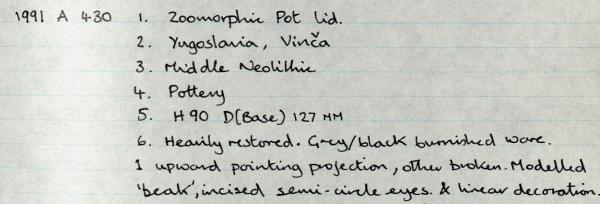 1991 A 430 1. Zoomorphic Pot lid.
2. Yugoslavia, Vinča
3. Middle Neolithic
4. Pottery
5. H 90 D(Base) 127 MM
6. Heavily restored. Grey/black burnished ware.
1 upward pointing projection, other broken. Modelled
'beak', incised semi-circle eyes. & linear decoration.